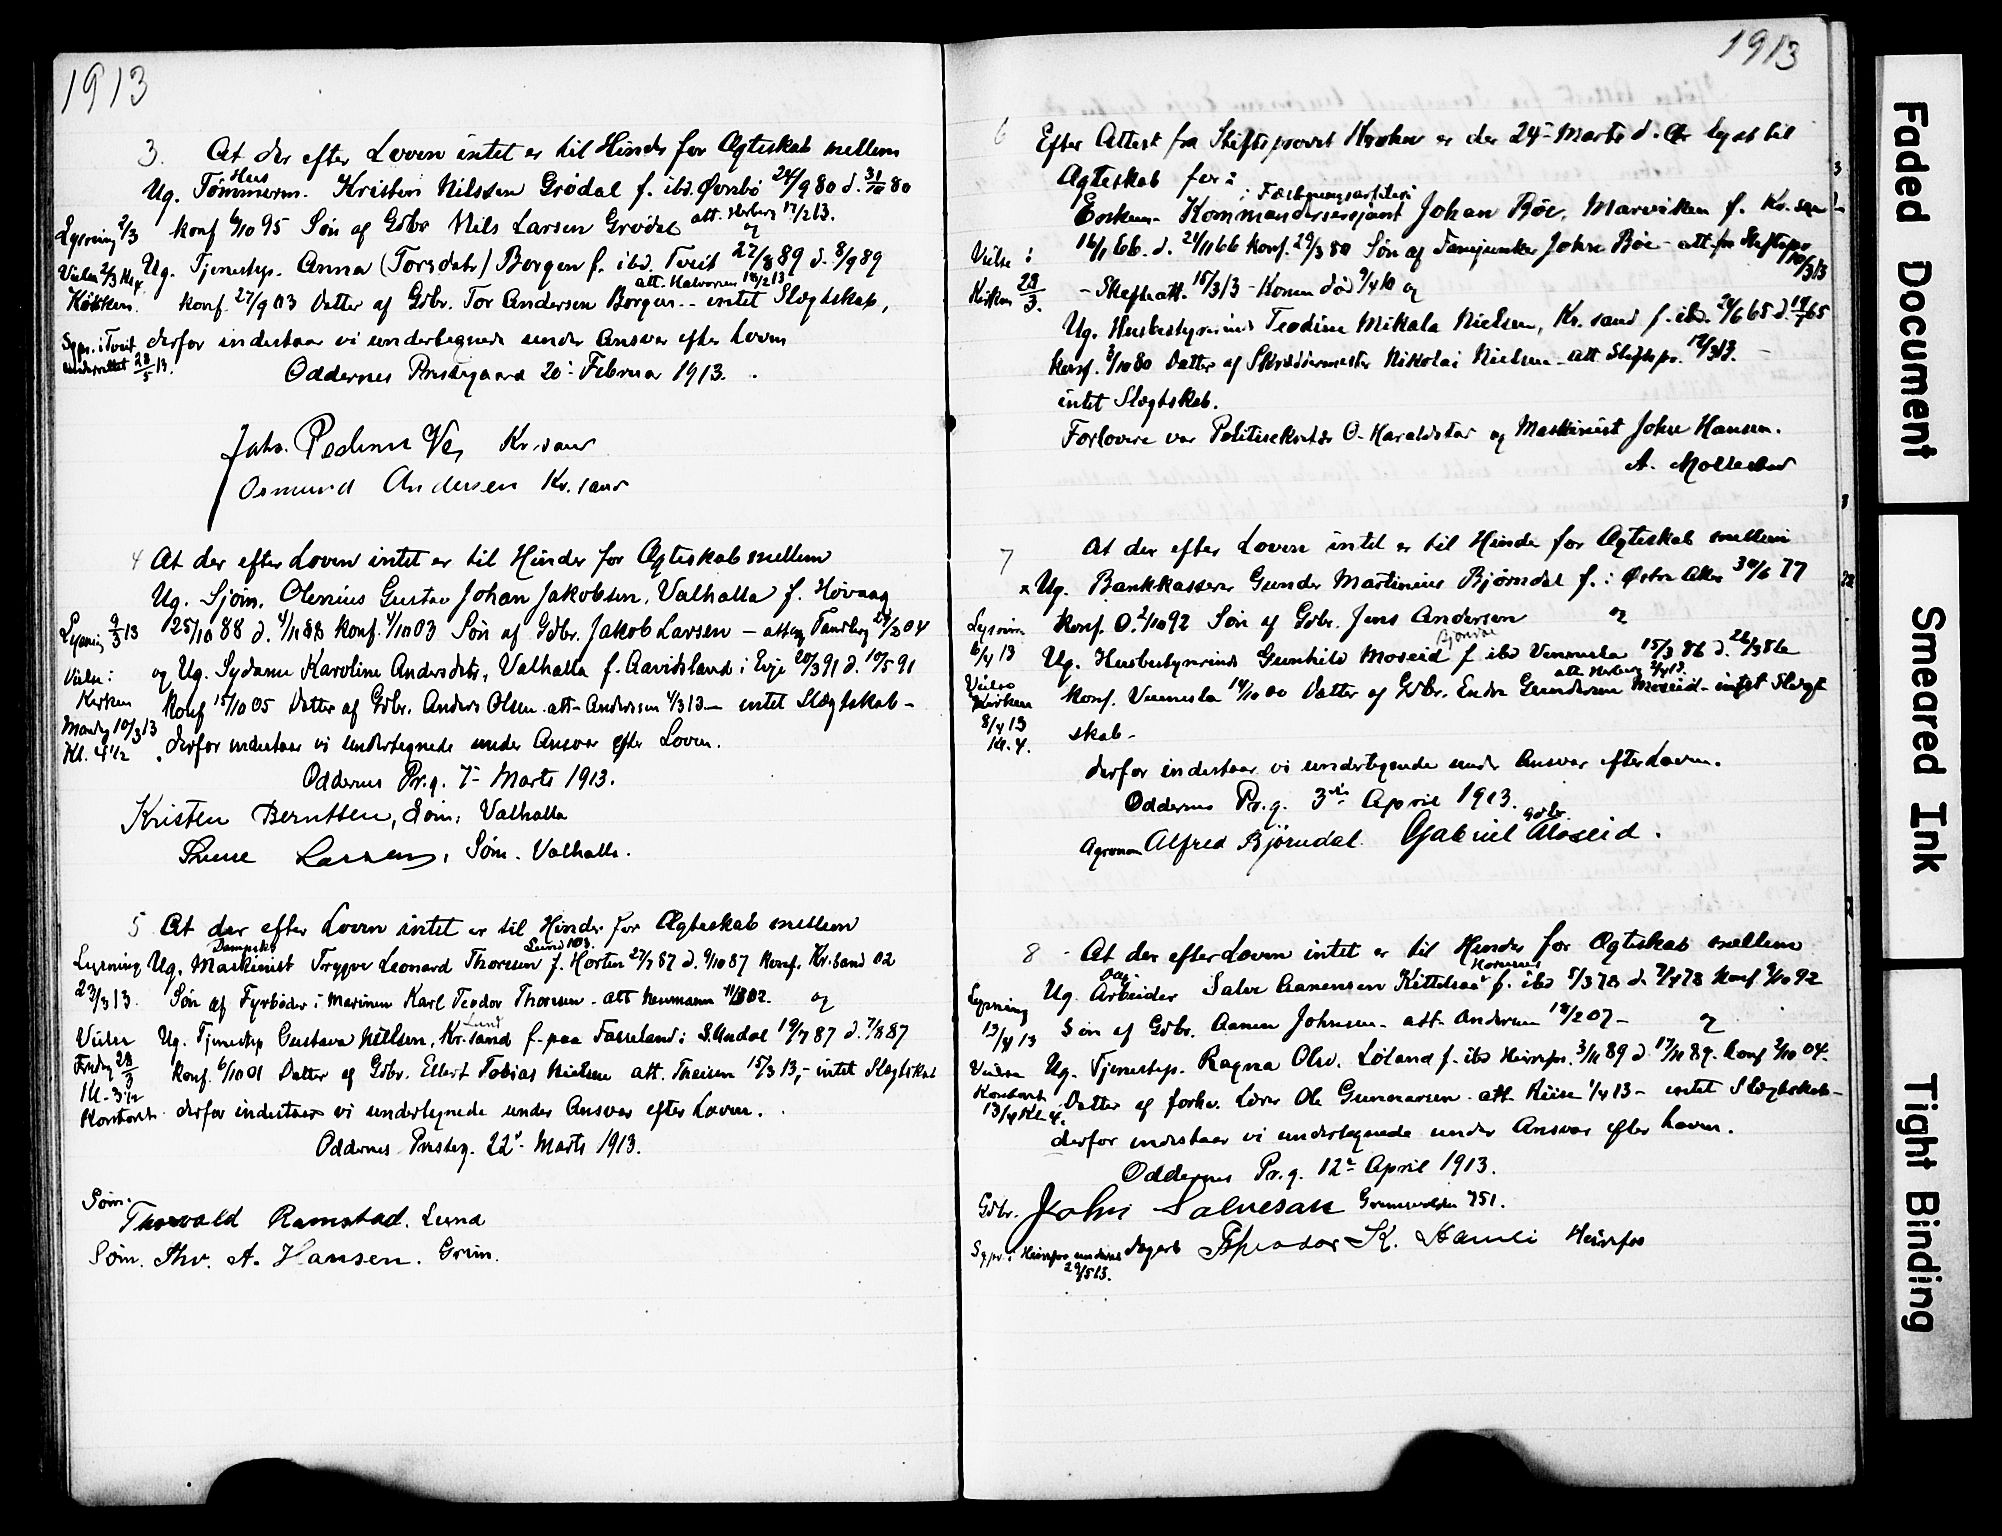 1913
3. At der efter Loven intet er til Hinder for Ægteskab mellem
Hus
Ug. Tømmerm. Kristen Nilssen Grødal f. ibd. Øvrebø 24/9 80 d. 31/10 80
Lysning 2/3 konf 6/10 95 Søn af Gdbr Nils Larsen Grødal att. Herberg 17/2 13. og
Ug. Tjenestep. Anna (Torsdatr) Borgen f. ibd. Tveit 22/8 89 d. 8/9 89
att. Halvorsen 18/2 13
Køkken. konf. 27/9 03 Datter af Gdbr. Tor Andersen Borgen - intet Slægtskab,
Sgpr. i Tveit derfor indestaar vi undertegnede under Ansvar efter Loven
underrettet 28/5 13.
Oddernes Prestegaard 20: Februar 1913.
Johs. Pedersen Kr.sand
Osmund Andersen Kr.sand
4 At der efter Loven intet er til Hinder for Ægteskab mellem
Ug. Sjøm. Olenius Gustav Johan Jakobsen, Valhalla f. Høvaag
Lysning 9/3 13 25/10 88 d. 4/11 88 konf. 4/10 03 Søn af Gdbr. Jakob Larsen - attest Tandberg 04
Vielse i og Ug. Sydame Karoline Andersdtr, Valhalla f. Aavidsland i Evje 20/3 91 d. 10/5 91
Kirken konf 15/10 05 Datter af Gdbr. Anders Olsen att. Anderssen 4/3 13 - intet Slægtskab -
Mandag 10/3 13
Kl. 4 1/2 derfor indestaar vi undertegnede under Ansvar efter Loven.
Oddernes Pr.g. 7- Marts 1913.
Kristen Berntsen, Søm. Valhalla
Larsen, Søm. Valhalla.
5 At der efter Loven intet er til Hinder for Ægteskab mellem
Dampsk. Lund 103.
Lysning Ug. Maskinist Trygve Leonard Thorsen f. Horten 27/7 87 d. 9/10 87 konf. Kr.sand 02
23/3 13. Søn af Fyrbøder i Marinen Karl Teodor Thorsen - att Neumann 02. og
Lund
Vielse Ug. Tjenestep Gustava Nilsen, Kr.sand f. paa Fasseland i S. Undal 19/7 87 d. 7/8 87
Fredag 28/3 konf. 6/10 01 Datter af Gdbr. Ellert Tobias Nielsen att. Theisen 15/3 13, - intet Slægtskab
Kl. 3 1/2
Kontoret derfor indestaar vi undertegnede under Ansvar efter Loven.
Oddernes Presteg. 22' Marts 1913.
Søm.
Thorvald Ramstad. Lund
Søm. Thv. A. Hansen. Grim.
1913
6 Efter Attest fra Stiftsprovst Krohn er der 24- Marts d. Ar lyst til
Ægteskab for:
Enkem. Kommandersersjant i Fæstningsartilleri Johan Bøe, Marviken f. Kr.sand
Vielse i 16/1 66 d. 24/1 66 konf. 29/3 80 Søn af Fanejunker Johan Bøe - att. fra Stiftspr. 10/3 13
Kirken 28/3. - Skifteatt. 15/3 13 - Konen død 9/4 10 og
Ug. Husbestyrerinde Teodine Mikala Nielsen, Kr.sand f. ibd. 24/6 65 d. 65
konf. 3/10 80 Datter af Skræddermester Nikolai Nielsen - att Stiftspr. 12/3 13. -
intet Slægtskab.
Forlovere var Politisekretær O. Haraldstad og Maskinist John Hansen.
A. Mollestad
7 At der efter Loven intet er til Hinder for Ægteskab mellem
x Ug. Bankkasserer Gunder Martinius Bjørndal f. i Østre Aker 30/6 77
Lysning konf. O. 2/10 92 Søn af Gdbr. Jens Andersen og
Bjørndal
6/4 13 Ug. Husbestyrerinde Gunhild Moseid f ibd Vennesla 15/3 86 d. 22/3 86
att. Herberg 2/4 13.
Vielse konf. Vennesla 14/10 00 Datter af Gdbr. Endre Gundersen Moseid - intet Slægt
Kirken
8/4 13 skab -
Kl. 4.
derfor indestaar vi undertegnede under Ansvar efter Loven.
Oddernes Pr.g. 3die April 1913.
Gdbr.
Agronom Alfred Bjørndal. Gabriel Moseid.
8 - At der efter Loven intet er til Hinder for Ægteskab mellem
Hornnes
Ug. Arbeider Salve Aanensen Kittelsaa f. ibd 5/3 78 d. 7/4 78 konf 2/10 92
Lysning Søn af Gdbr. Aanen Johnsen - att Andersen 18/2 07 - og
13/4 13
Vielse Ug. Tjenestep. Ragna Olsd. Løland f. ibd Heirefos. 3/11 89 d 17/11 89. konf 2/10 04.
Kontoret Datter af forhv. Lærer Ole Gunnarsen att Riise 1/4 13 - intet Slægtskab -
13/4 Kl. 4.
derfor indestaar vi undertegnede under Ansvar efter Loven.
Oddernes Pr.g. 12- April 1913.
Gdbr. John Salvesen 751.
Sgpr. i Heirefos underrettet Theodor K. Hamli Heirefos
29/5 13.
Faded Document
Smeared Ink
Tight Binding